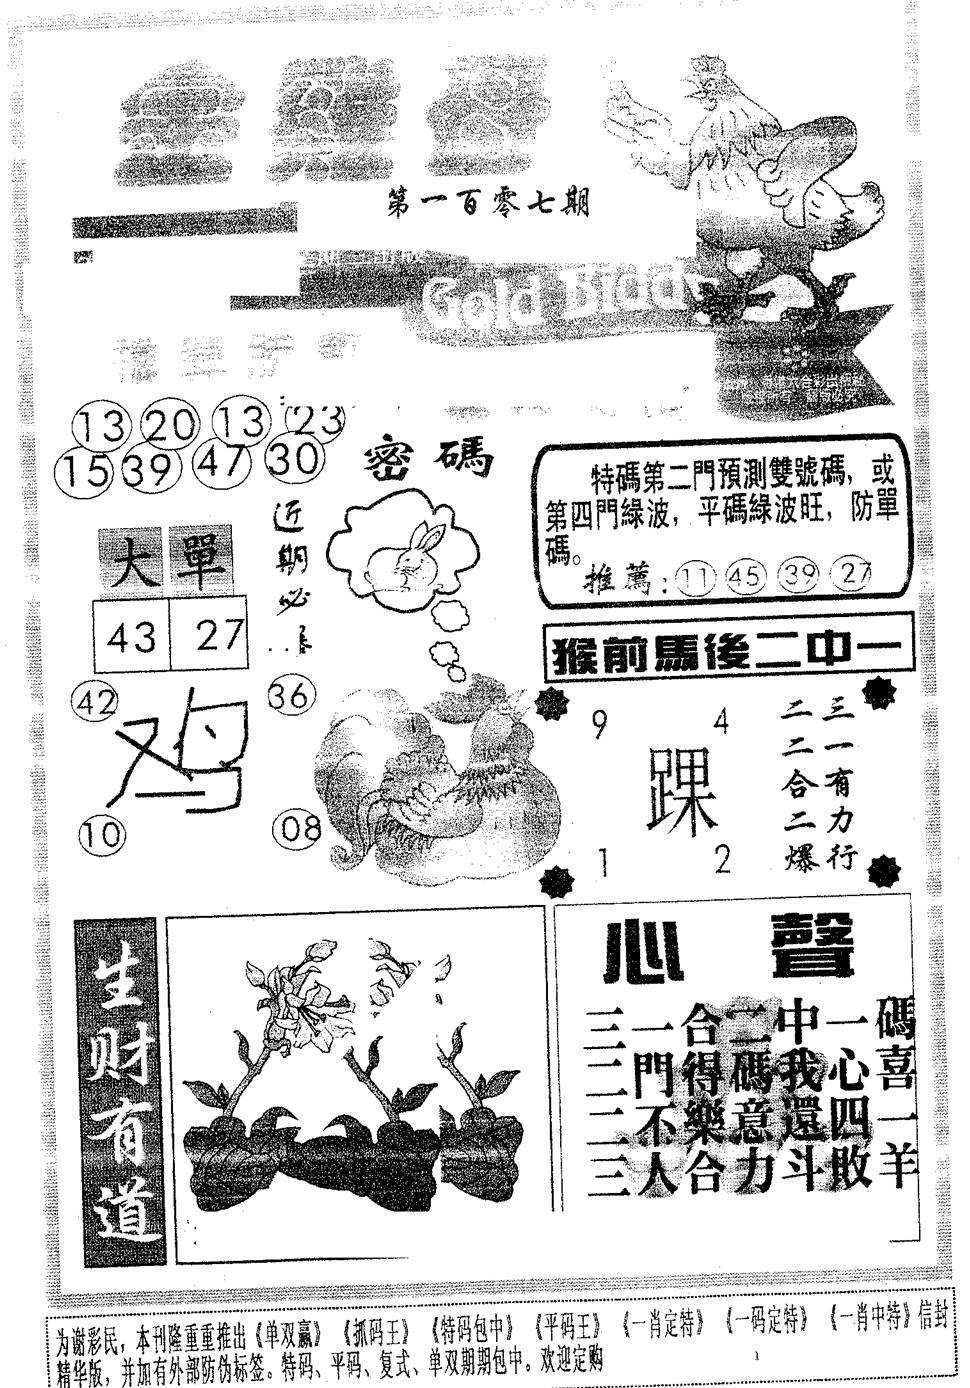 第一百零七期
Gold Bidd
13 20 13 23
15 39 47 30
密碼
近期必
大單
43 27
42 36
鸡
10 08
特碼第二門預測雙號碼，或
第四門綠波，平碼綠波旺，防單
碼。
推薦：11 45 39 27
猴前馬後二中一
9 4
踝
1 2
三一有力行
二二合二爆
生财有道
心聲
三一合二中一碼
二門得碼我心喜
二不樂意還四一
三人合力斗敗羊
为谢彩民，本刊隆重重推出《单双赢》《抓码王》《特码包中》《平码王》《一肖定特》《一码定特》《一肖中特》信封
精华版，并加有外部防伪标签。特码、平码、复式、单双期期包中。欢迎定购